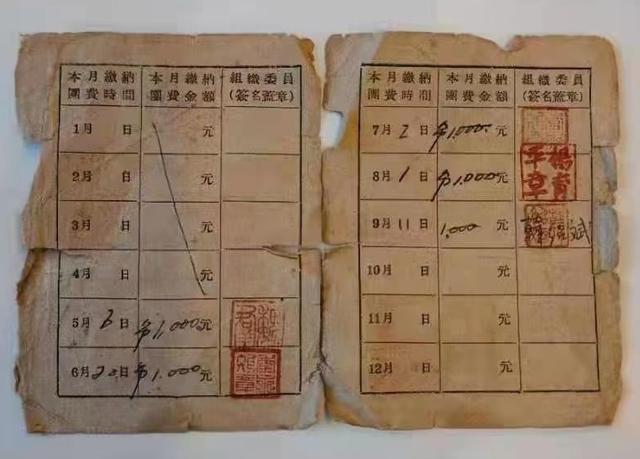 本月繳納團費時間 本月繳納團費金額 組織委員(簽名蓋章)
1月 日 元
2月 日 元
3月 日 元
4月 日 元
5月 日 1,000元
6月 20日 1.000元
本月繳納團費時間 本月繳納團費金額 組織委員(簽名蓋章)
7月 日 1,000元
8月 1日 1.000元 楊 章
9月 11日 1,000元 斌
10月 日 元
11月 日 元
12月 日 元